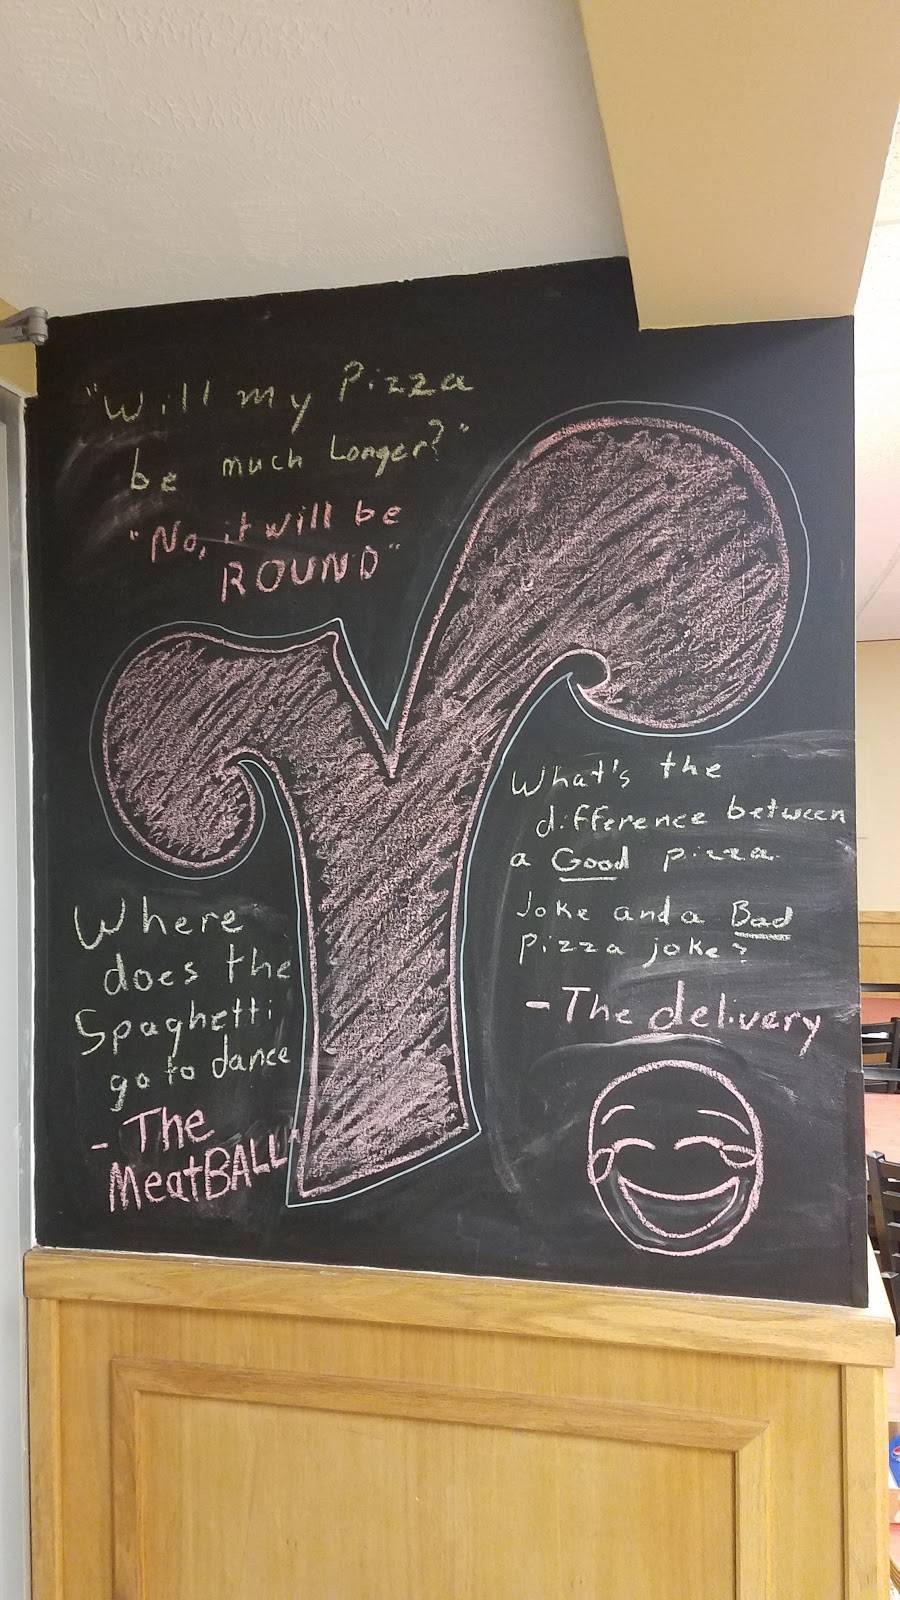 "Will my Pizza
be much Longer?"
"No, it will be
ROUND"
What's the
difference between
a Good pizza
Joke and a Bad
Pizza joke?
- The delivery
Where
does the
Spaghetti
go to dance
- The
MeatBALL